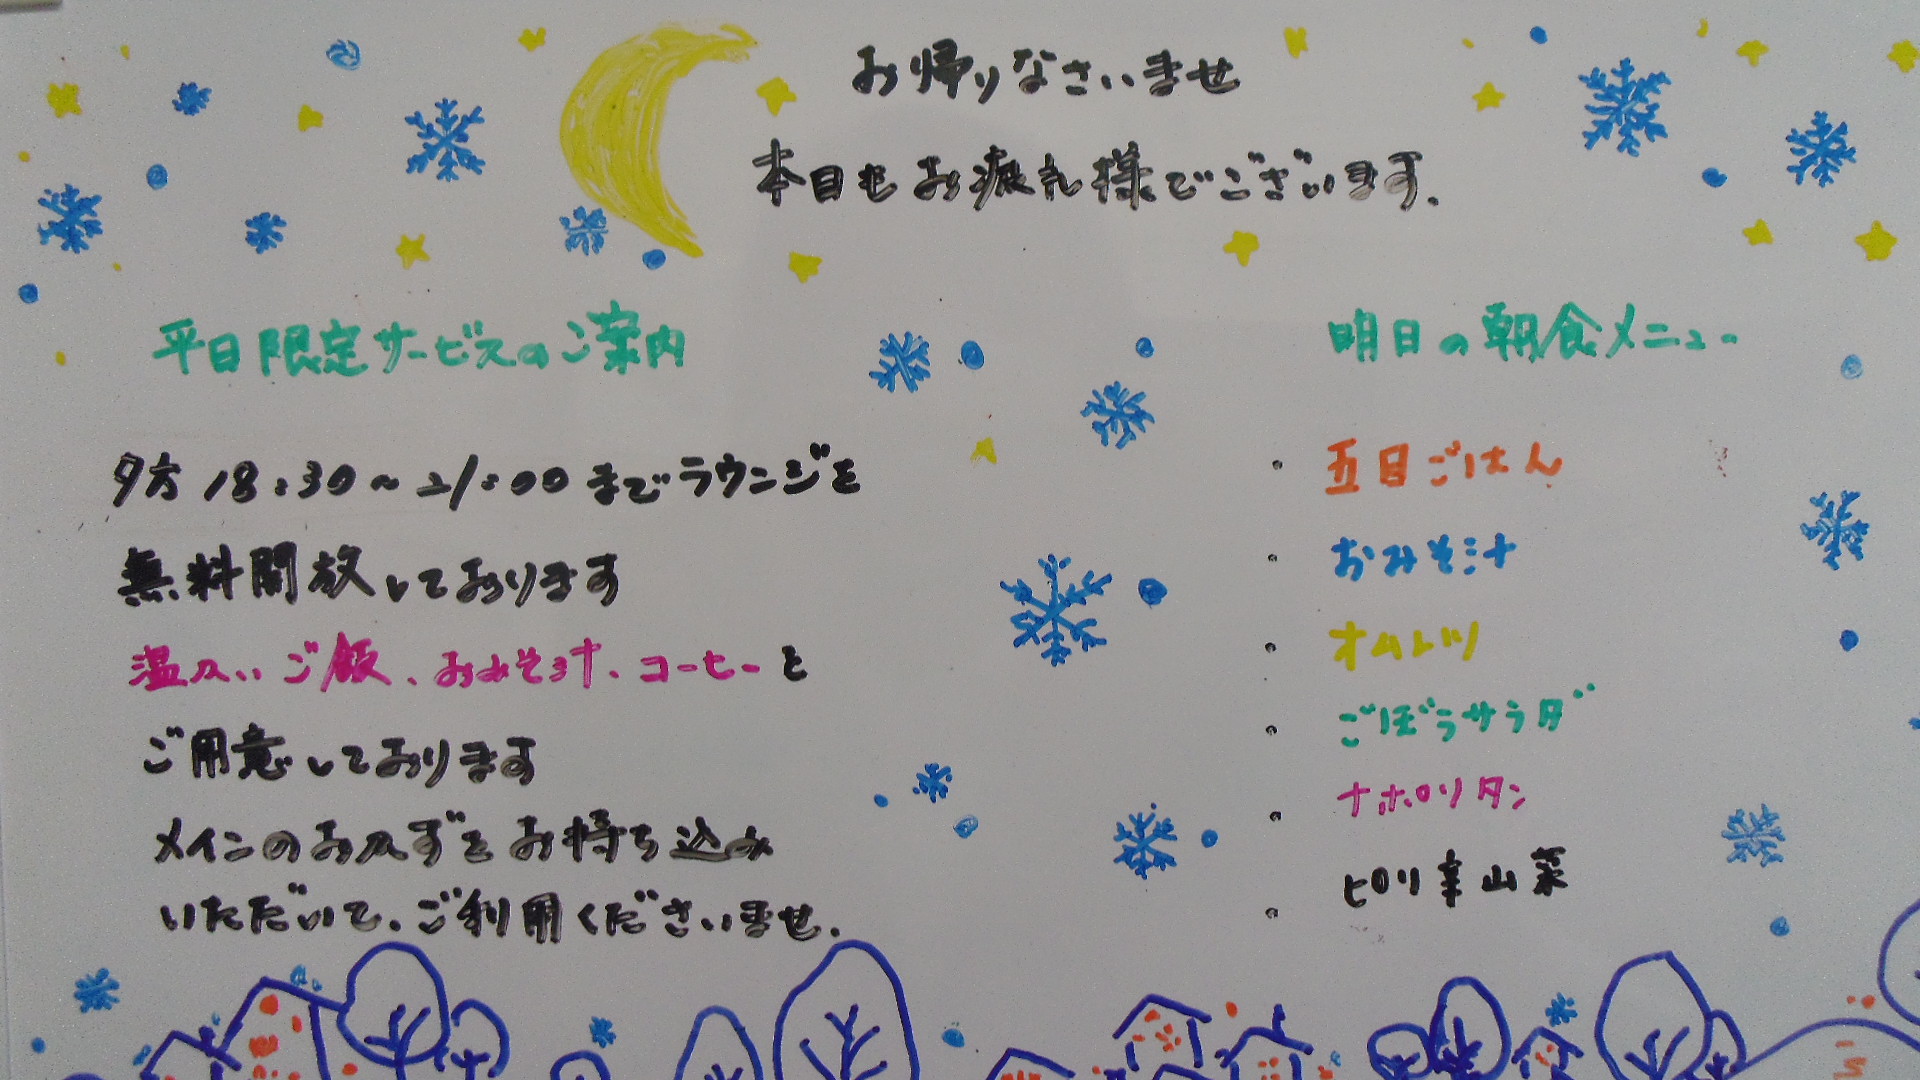 お帰りなさいませ
本日もお疲れ様でございます.
平日限定サービスのご案内
夕方 18:30〜21:00 までラウンジを
無料開放しております
温かいご飯、おみそ汁、コーヒーと
ご用意しております
メインのおかずをお持ち込み
いただいて、ご利用くださいませ.
明日の朝食メニュー
・五目ごはん
・おみそ汁
・オムレツ
・ごぼうサラダ
・ナポリタン
・ピリ辛山菜